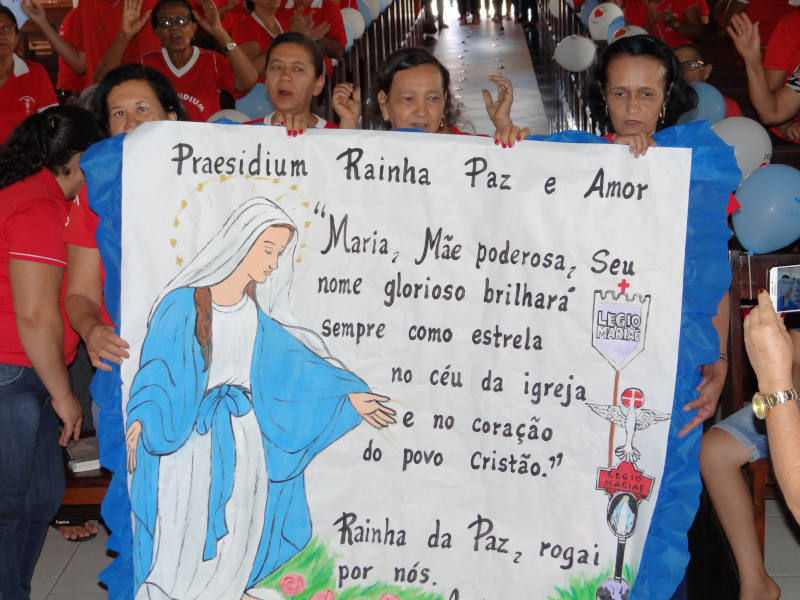 Praesidium Rainha Paz e Amor
"Maria, Mãe poderosa, Seu
nome glorioso brilhará
sempre como estrela
no céu da igreja
e no coração
do povo Cristão."
LEGIO
MARIAE
LEGIO
MARIAE
Rainha da Paz, rogai
por nós.